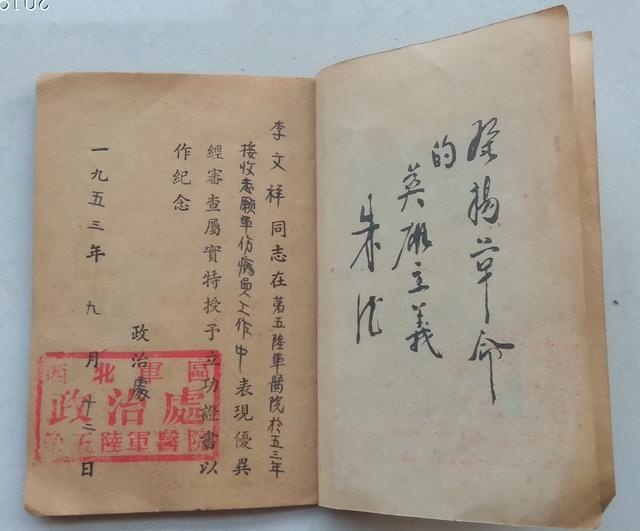 發揚革命
的
英雄主義
朱德
李文祥同志在第五陸軍醫院於五三年
接收志願軍伤病員工作中表現優異
經審查屬實特授予立功證書以
作紀念
政治處
一九五三年九月十二日
西北軍區
政治處
第五陸軍醫院